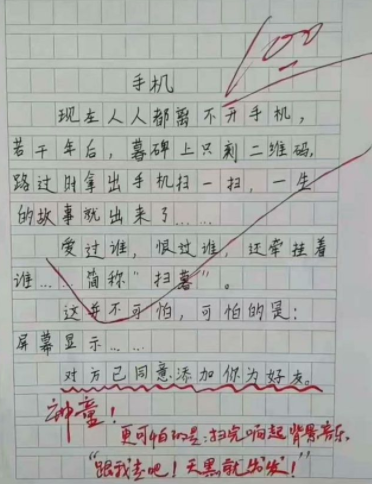 100
手机
现在人人都离不开手机，
若干年后，墓碑上只刻二维码，
路过时拿出手机扫一扫，一生
的故事就出来了……
爱过谁，恨过谁，还牵挂着
谁……简称"扫墓"。
这并不可怕，可怕的是：
屏幕显示……
对方已同意添加你为好友。
神童！
更可怕的是：扫完响起背景音乐，
"跟我走吧！天黑就出"发"！"